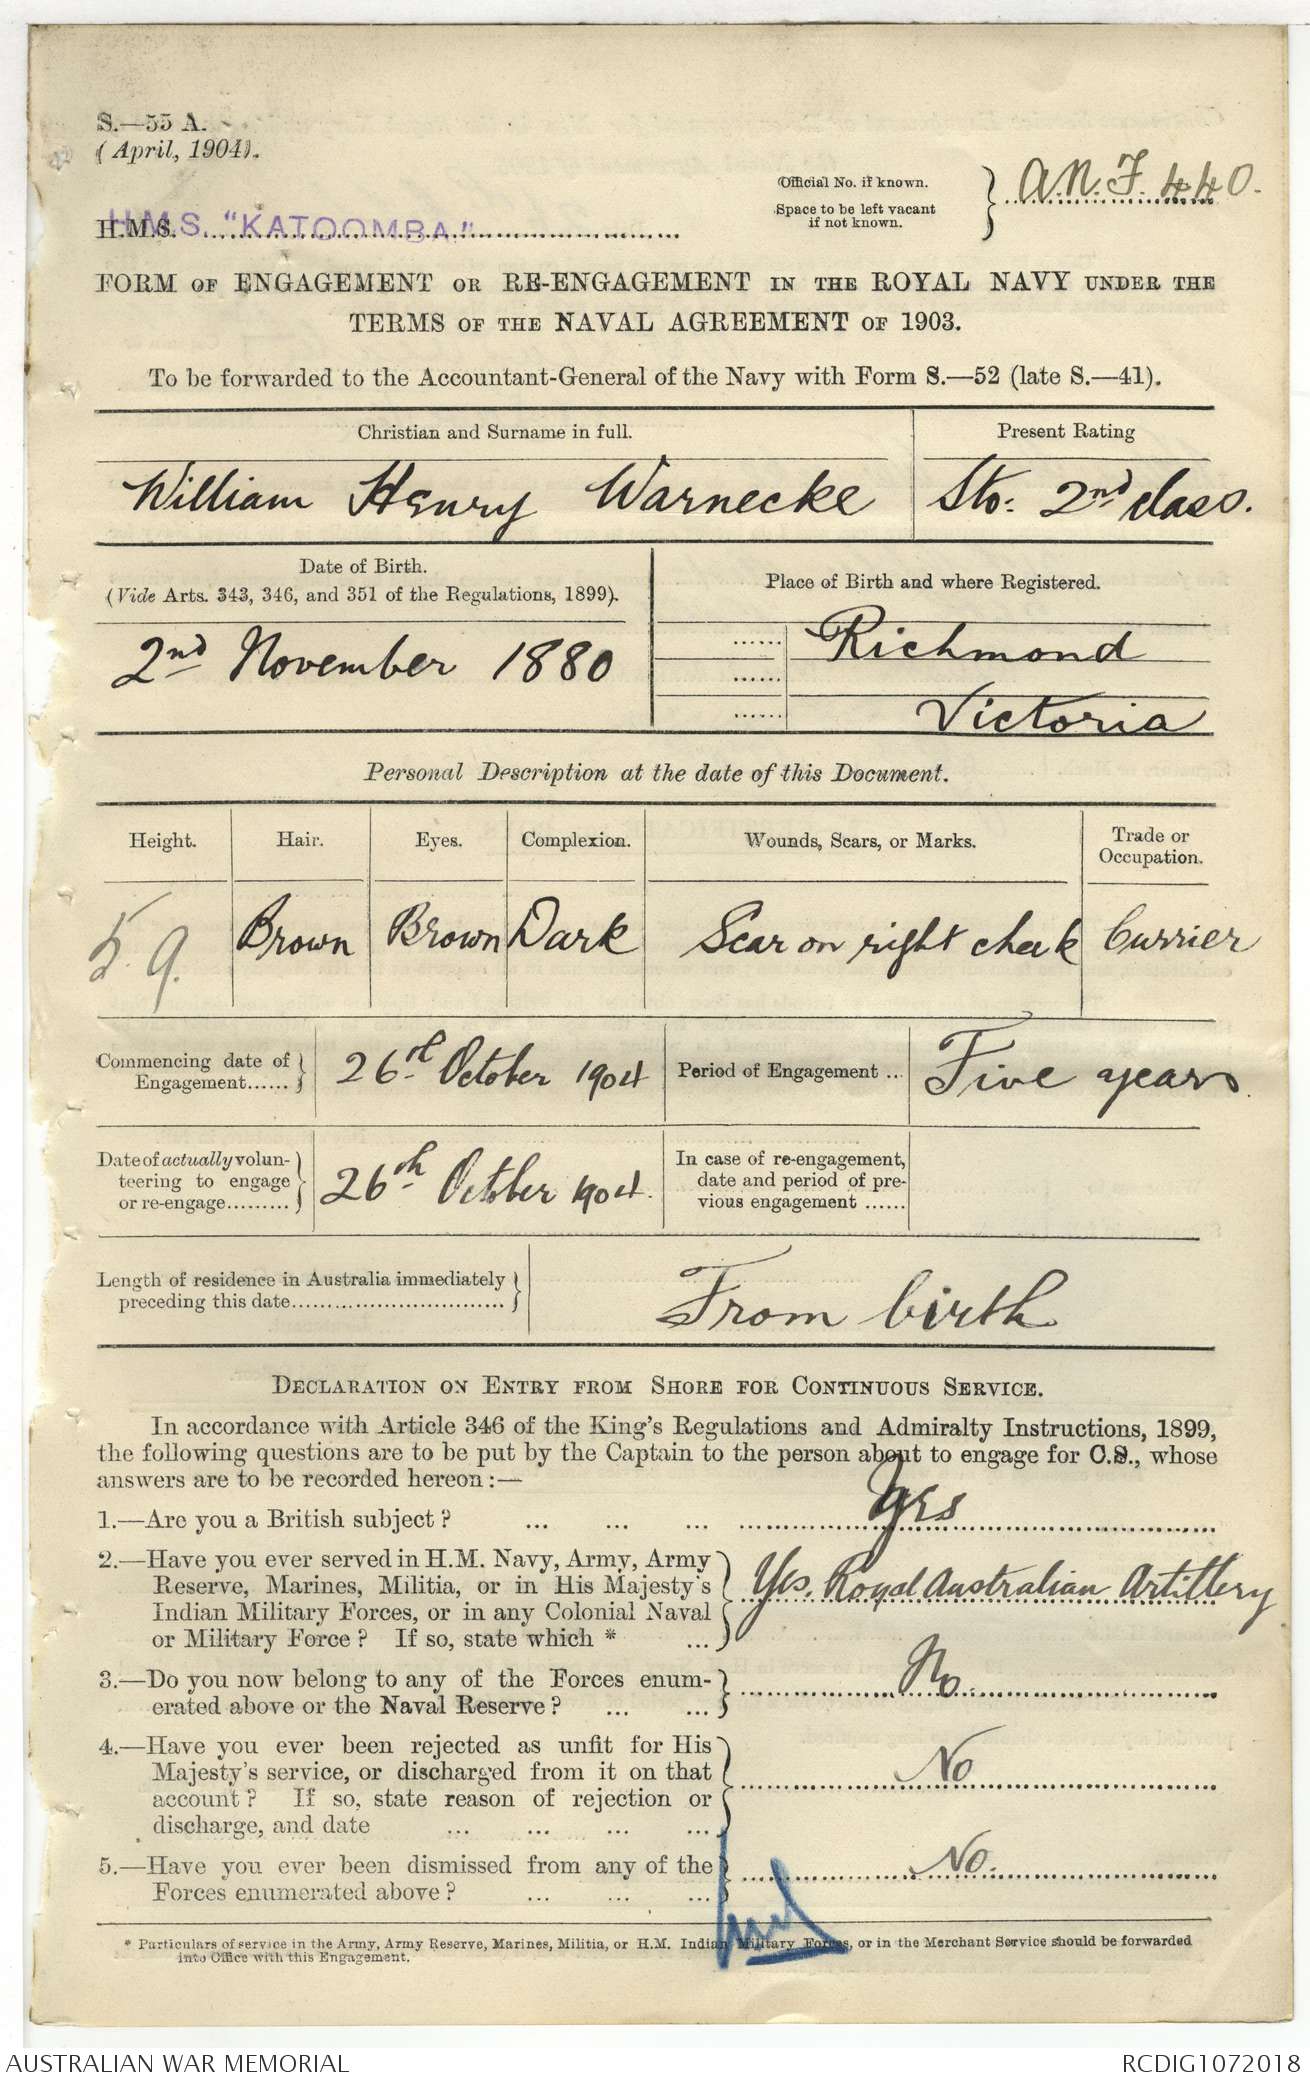 S.—55 A.
(April, 1904).
Official No. if known.
Space to be left vacant
if not known.
A.N.F. 440.
H.M.S. H.M.S. "KATOOMBA"
FORM OF ENGAGEMENT OR RE-ENGAGEMENT IN THE ROYAL NAVY UNDER THE
TERMS OF THE NAVAL AGREEMENT OF 1903.
To be forwarded to the Accountant-General of the Navy with Form S.—52 (late S.—41).
Christian and Surname in full. Present Rating
William Henry Warnecke Sto: 2nd class.
Date of Birth.
(Vide Arts. 343, 346, and 351 of the Regulations, 1899).
Place of Birth and where Registered.
2nd November 1880
Richmond
Victoria
Personal Description at the date of this Document.
Height. Hair. Eyes. Complexion. Wounds, Scars, or Marks. Trade or
Occupation.
5. 9. Brown Brown Dark Scar on right cheek Currier
Commencing date of
Engagement......
26th October 1904
Period of Engagement ...
Five years.
Date of actually volun-
teering to engage
or re-engage.........
26th October 1904.
In case of re-engagement,
date and period of pre-
vious engagement ......
Length of residence in Australia immediately
preceding this date..............................
From birth
DECLARATION ON ENTRY FROM SHORE FOR CONTINUOUS SERVICE.
In accordance with Article 346 of the King's Regulations and Admiralty Instructions, 1899,
the following questions are to be put by the Captain to the person about to engage for C.S., whose
answers are to be recorded hereon:—
1.—Are you a British subject? ... ... ... Yes
2.—Have you ever served in H.M. Navy, Army, Army
Reserve, Marines, Militia, or in His Majesty's
Indian Military Forces, or in any Colonial Naval
or Military Force? If so, state which * ...
Yes. Royal Australian Artillery
3.—Do you now belong to any of the Forces enum-
erated above or the Naval Reserve? ... ...
No.
4.—Have you ever been rejected as unfit for His
Majesty's service, or discharged from it on that
account? If so, state reason of rejection or
discharge, and date ... ... ... ...
No
5.—Have you ever been dismissed from any of the
Forces enumerated above? ... ... ...
No.
* Particulars of service in the Army, Army Reserve, Marines, Militia, or H.M. Indian Military Forces, or in the Merchant Service should be forwarded
into Office with this Engagement.
AUSTRALIAN WAR MEMORIAL RCDIG1072018